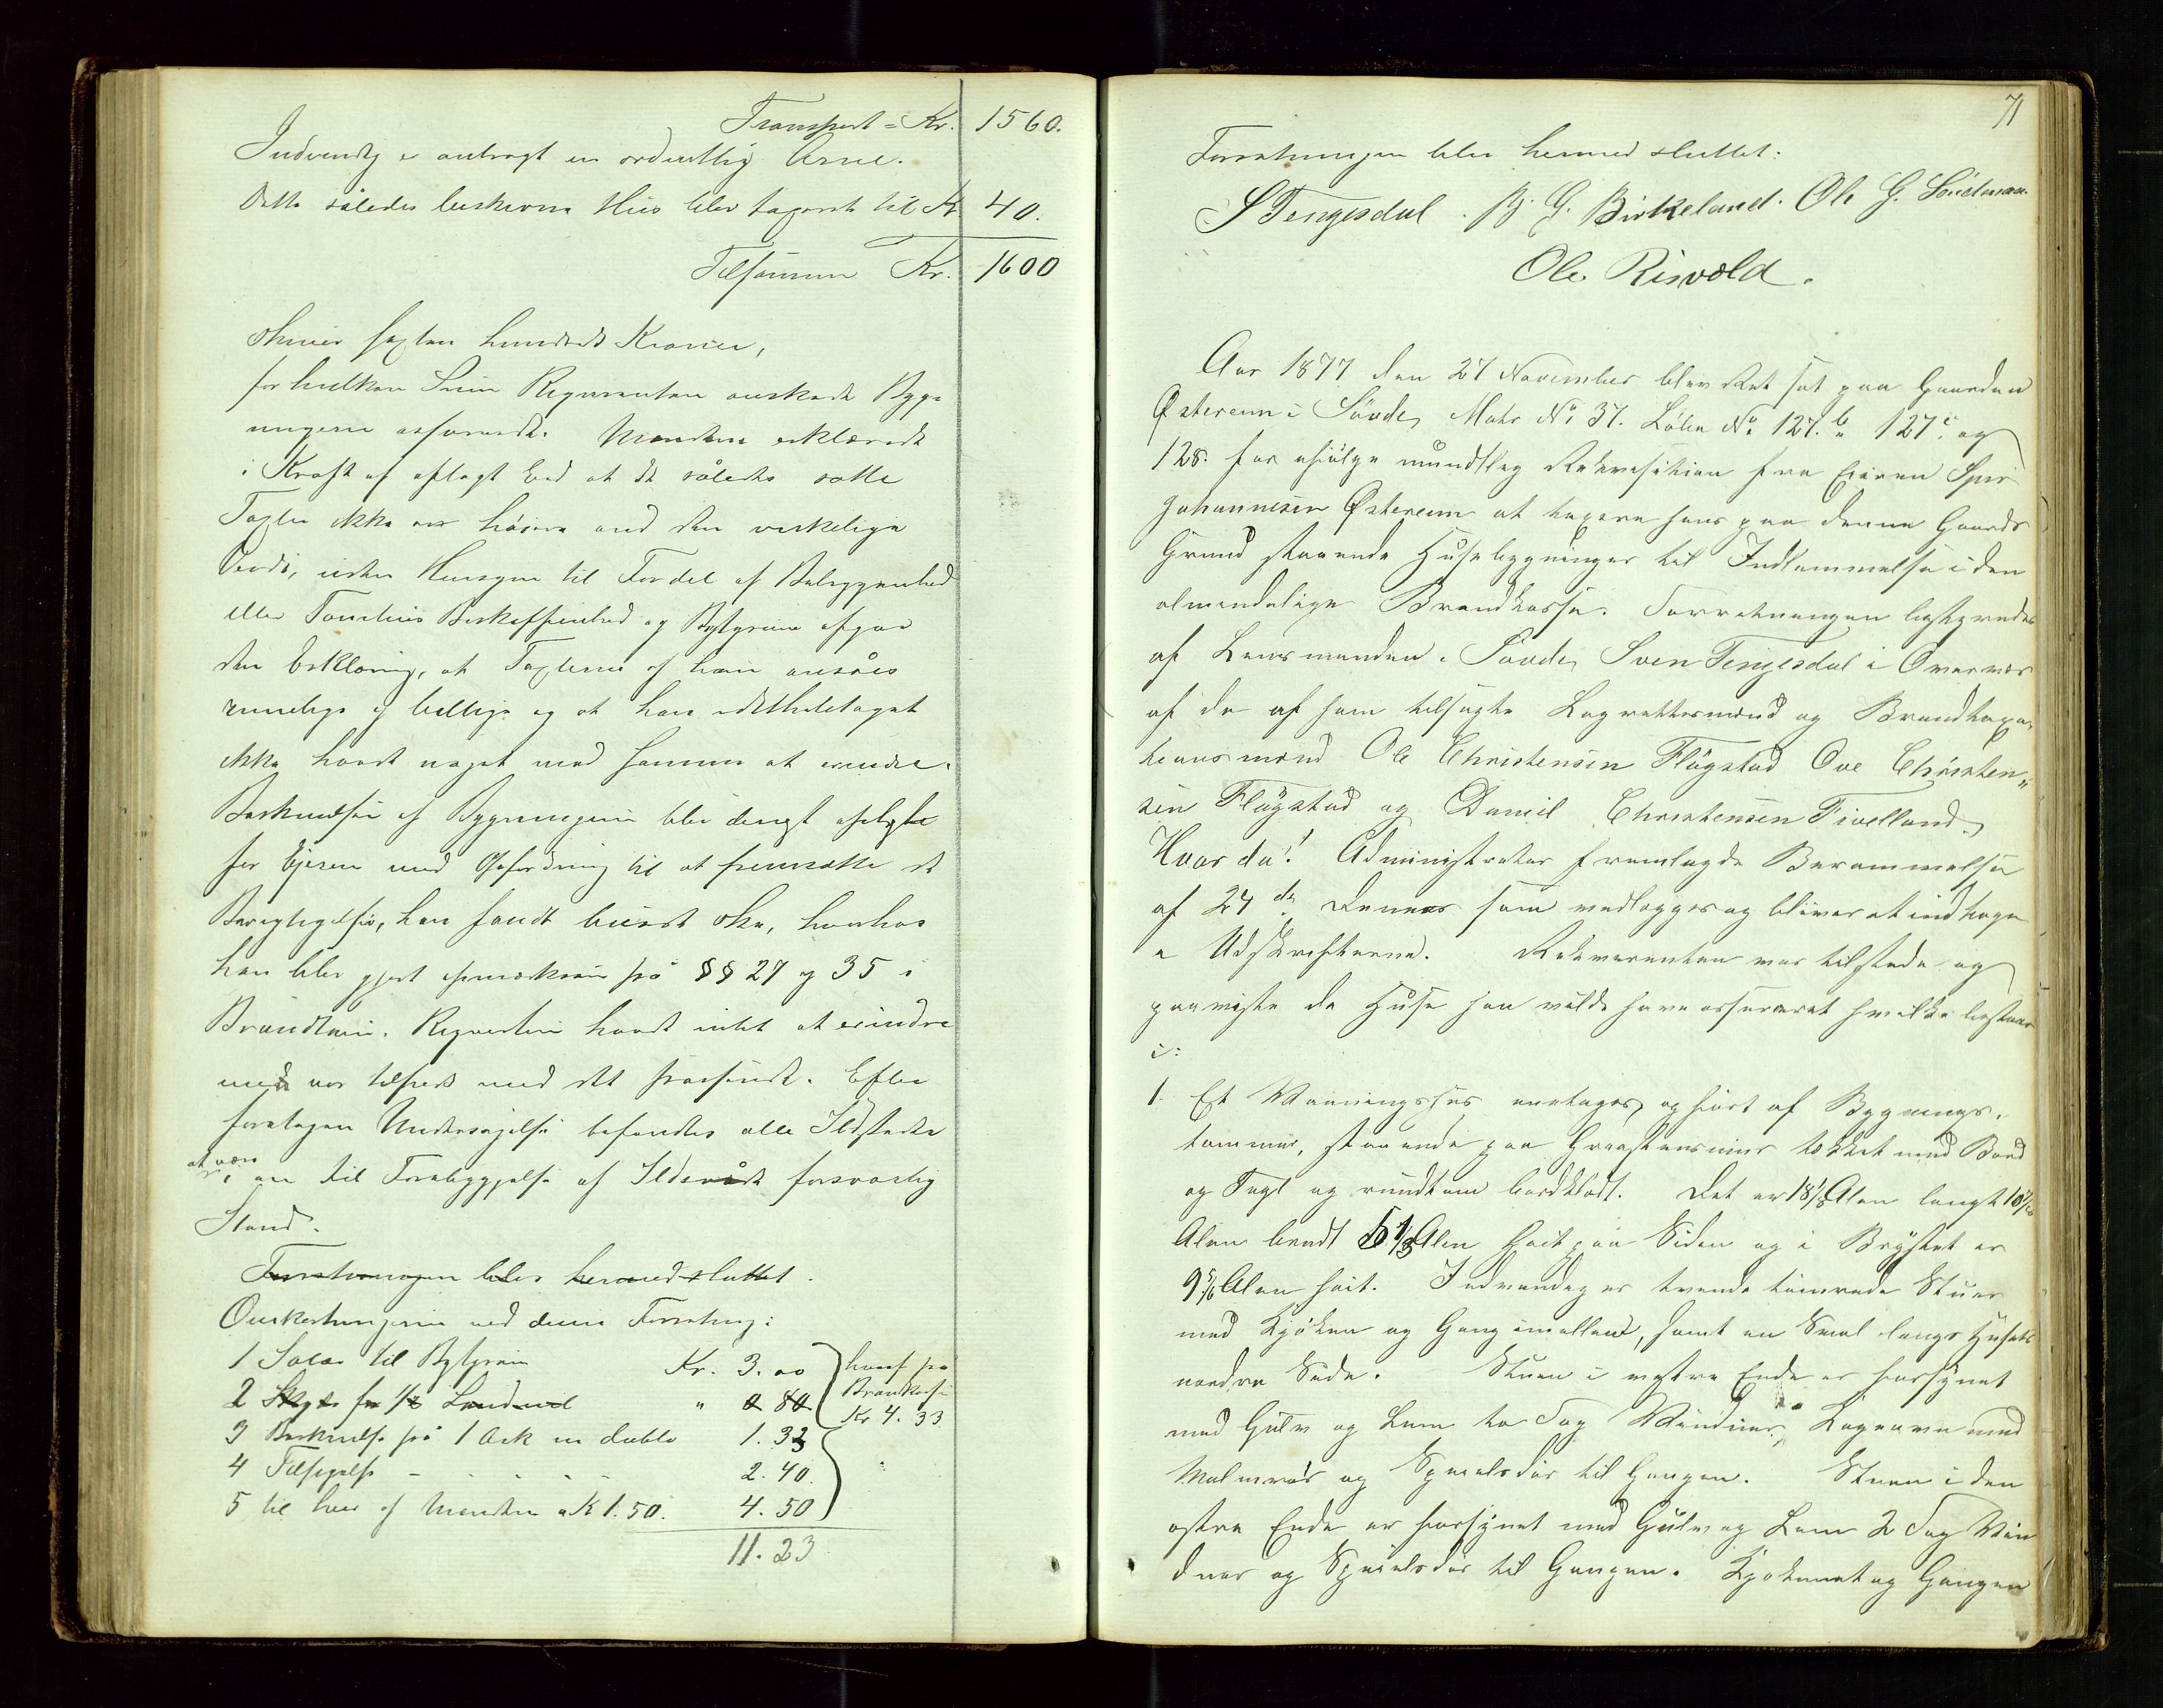 Transport = Kr. 1560.
Indvendig er anbragt en ordentlig Arne.
Dette således beskrevne Hus blev taxeret til Kr 40.
Tilsammen Kr. 1600
skriver sexten hundrede Kroner,
for hvilken Sum Reqvirenten ønskede Byg-
ningerne assurerede. Mændene erklærede
i Kraft af aflagt Ed at de således satte
Taxter ikke var høiere end den virkelige
Værdi, uden Hensyn til Fordel af Beliggenhed
eller Tomtens Beskaffenhed og Bestyreren afgav
den Erklæring, at Taxterne af ham ansåes
rimelige og billige og at han idethele taget
ikke havde noget mod samme at erindre.
Beskrivelsen af Bygningerne blev derpaa oplæste
for Ejeren med Opfordring til at fremsætte de
Berigtigelser, han fandt burde ske, hvorhos
han blev gjort opmærksom på §§ 27 og 35 i
Brandloven. Reqvirenten havde intet at erindre
men var tilfreds med det passerede. Efter
foretagen Undersøgelse befandtes alle Ildsteder
at være i en til Forebyggelse af Ildsvåde forsvarlig
Stand.
Forretningen blev hermed sluttet.
Omkostningerne ved denne Forretning:
1 Salær til Bestyreren Kr. 3.00
2 Skyds for 1/2 Landmil " 0 80
3 Beskrivelse på 1 Ark in duplo 1.33
4 Tilsigelse - - - - - 2.40.
5 til hver af Mændene a Kr 1.50. 4.50
hvoraf på
Brankassen
Kr 4.33
11.23
71
Forretningen blev hermed sluttet:
S Tengesdal. B. G. Birkeland. Ole G.
Ole Risvold.
Aar 1877 den 27 November blev Ret sat paa Gaarden
Østereim i Søvde, Matr No 37. Løbe No 127.b 127c. og
128. for ifølge mundtlig Rekvisition fra Eieren
Johannesen Østereim at taxere hans paa denne Gaards
Grund staaende Husebygninger til Indlemmelse i den
almindelige Brandkasse. Forretningen bestyredes
af Lensmanden i Søvde, Sven Tengesdal i Overvær
af de af ham tilsagte Lagrettesmænd og Brandtaxa-
tionsmænd Ole Christensen Fløgstad Ove Christen-
sen Fløgstad og Daniel Christensen Tvelland.
Hvorda! Administrator fremlagde Berammelse
af 24de Dennes som vedlægges og bliver at indtage
i Udskrifterne. Rekvirenten var tilstede og
paaviste de Huse han vilde have assureret hvilke bestaar
i:
1. Et Vaaningshus eenetages, opført af Bygnings-
tømmer, staaende paa Graastensmur tækket med Bord
og Tegl og rundtom bordklædt. Det er 18 1/2 Alen langt 10
Alen bredt 5 1/8 Alen høit paa Siden og i Brystet er
9 5/6 Alen høit. Indvendig er tvende tømrede Stuer
med Kjøken og Gang imellem, samt en Sval langs Husets
nordre Side. Stuen i vestre Ende er forsynet
med Gulv og Lem to Fag Vinduer, Kagelovn med
Malmrør og Speilsdør til Gangen. Stuen i den
østre Ende er forsynet med Gulv og Lem 2 Fag Vin
duer og Speilsdør til Gangen. Kjøkenet og Gangen